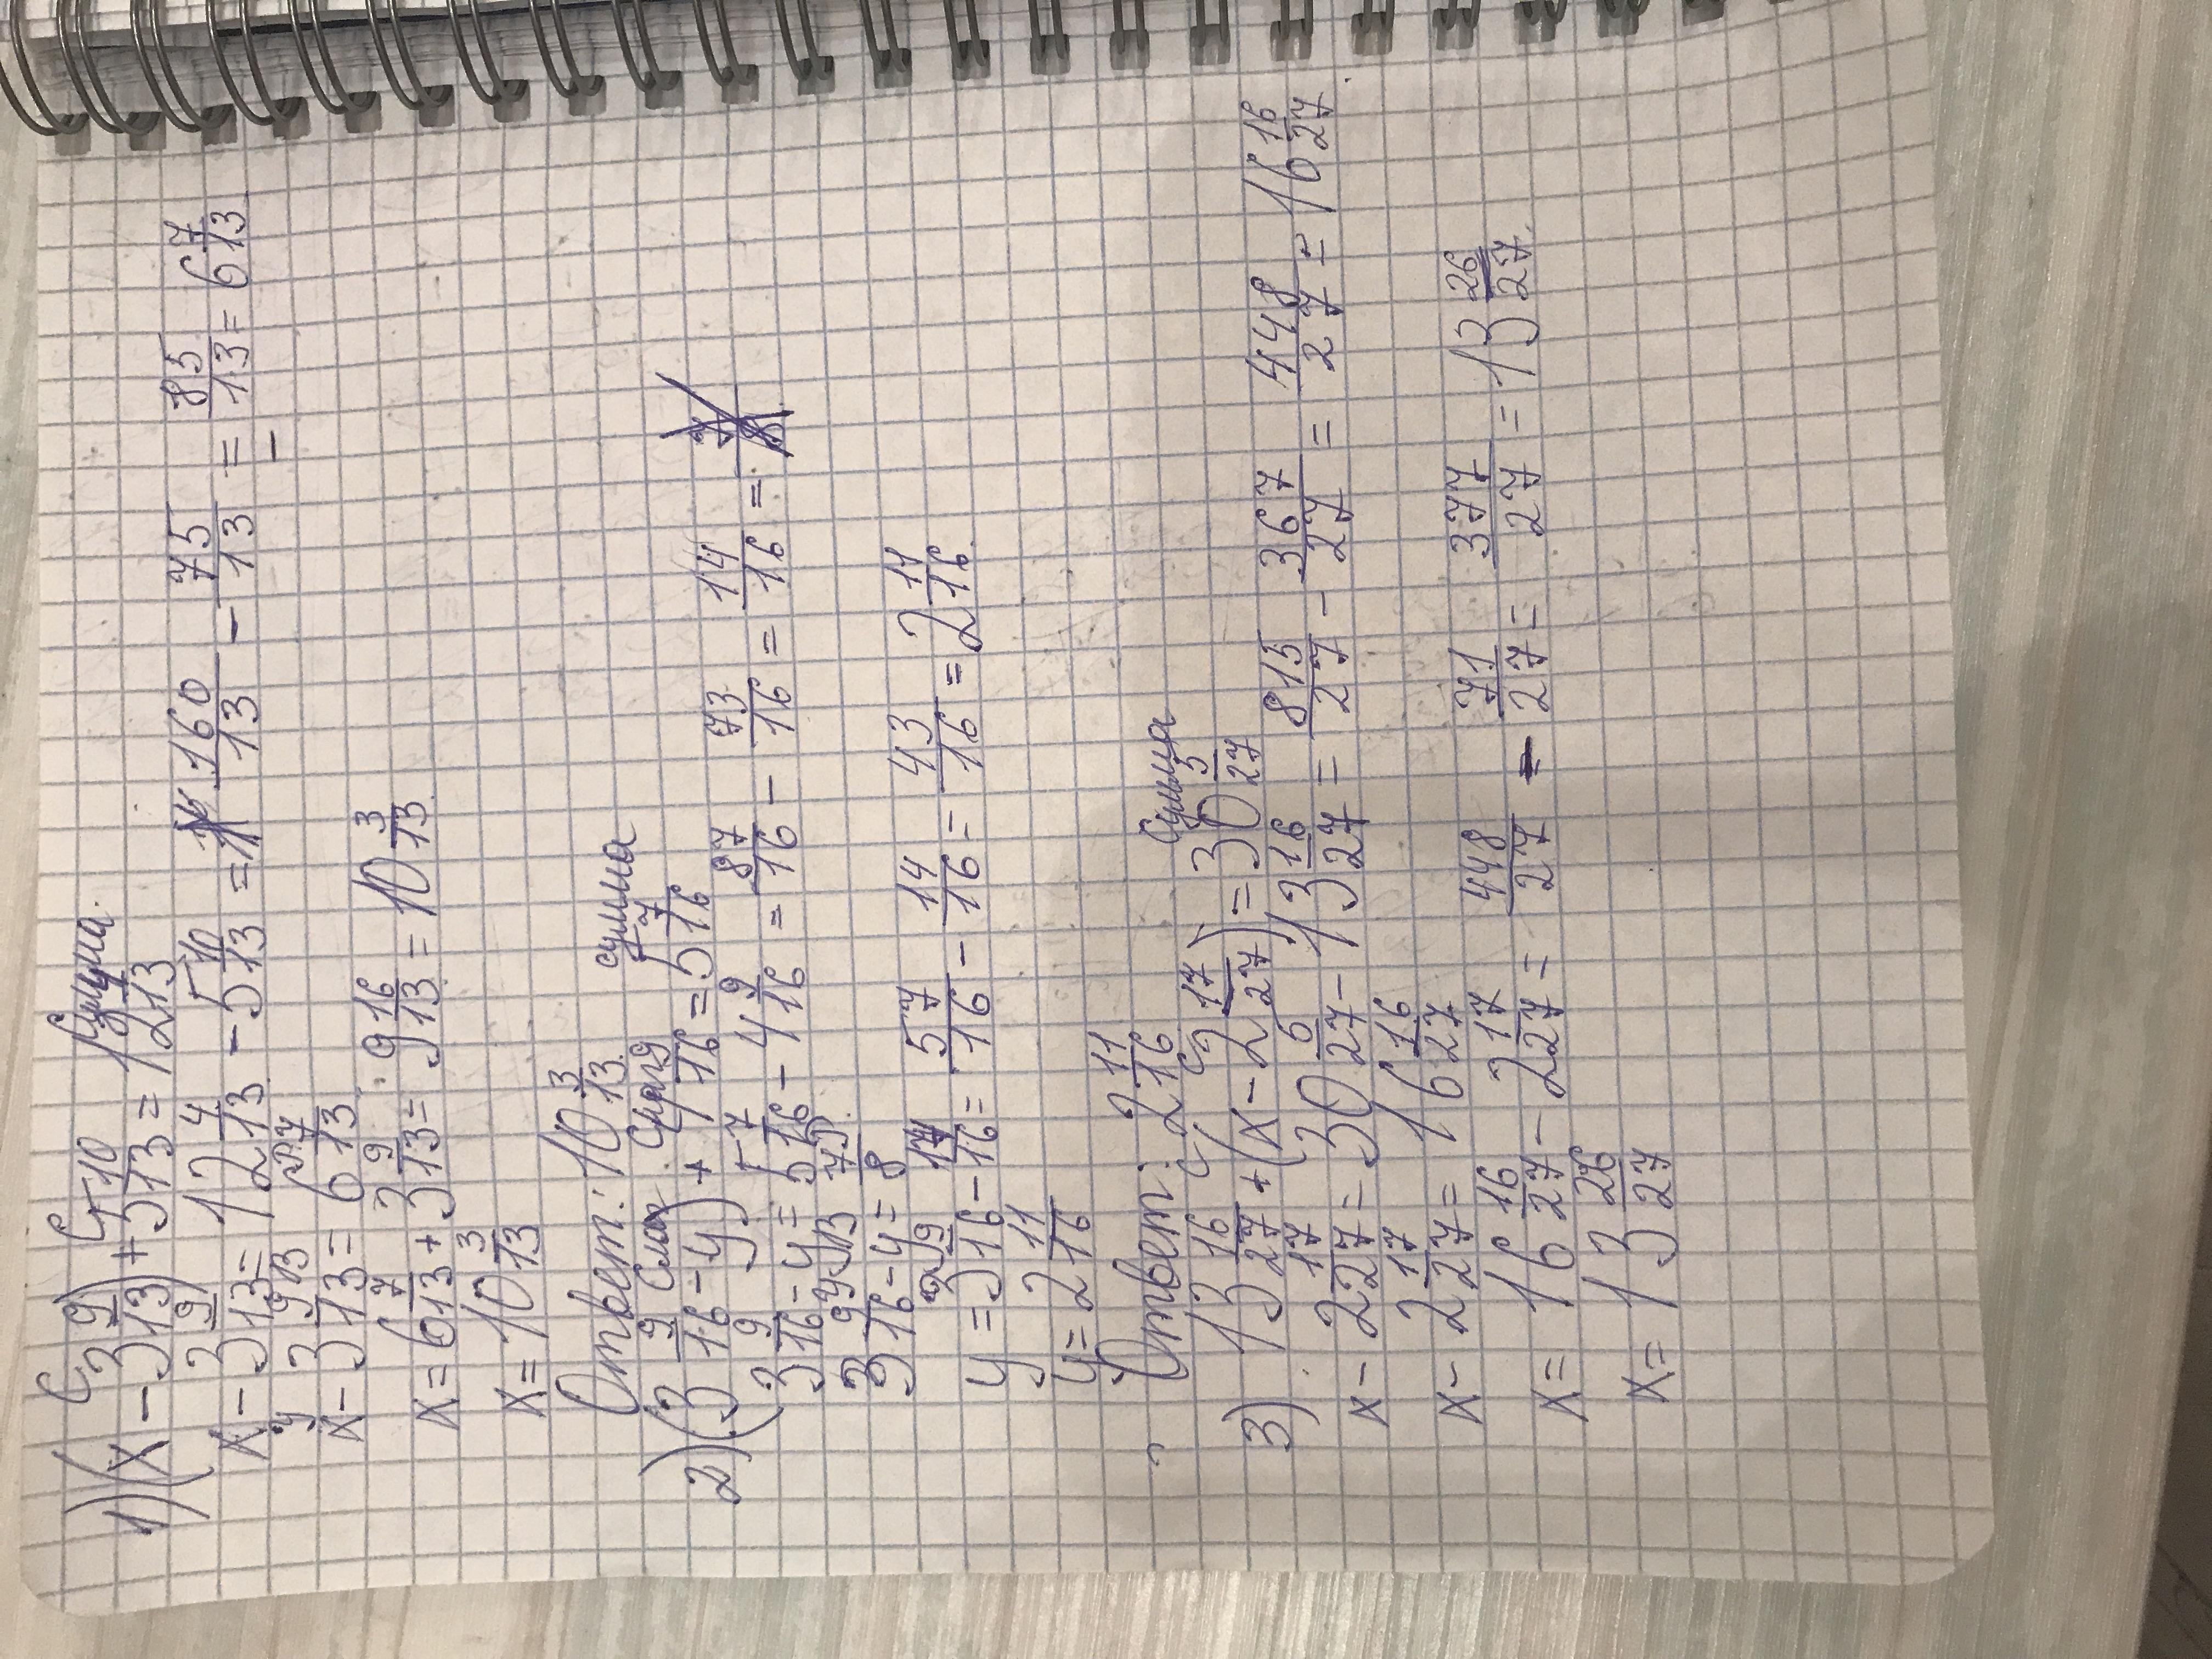 С С Сумма
1) (x - 3 9/13) + 5 10/13 = 12 4/13
x - 3 9/13 = 12 4/13 - 5 10/13 = 160/13 - 75/13 = 85/13 = 6 7/13
x - 3 9/13 = 6 7/13
x = 6 7/13 + 3 9/13 = 9 16/13 = 10 3/13
x = 10 3/13
Ответ: 10 3/13
сумма
2) (3 9/16 - y) + 4 9/16 = 5 7/16
3 9/16 - y = 5 7/16 - 4 9/16 = 87/16 - 73/16 = 14/16 =
3 9/16 - y =
y = 3 9/16 - 14/16 = 57/16 - 14/16 = 43/16 = 2 11/16
y = 2 11/16
Ответ: 2 11/16
С С Сумма
3) 13 16/27 + (x - 2 17/27) = 30 5/27
x - 2 17/27 = 30 5/27 - 13 16/27 = 815/27 - 367/27 = 448/27 = 16 16/27
x - 2 17/27 = 16 16/27
x = 16 16/27 - 2 17/27 = 448/27 - 71/27 = 377/27 = 13 26/27
x = 13 26/27